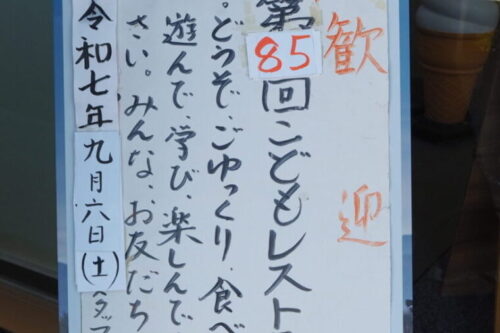 歓迎
第85回こどもレスト
。どうぞ、ごゆっくり、食べ
遊んで、学び、楽しんで
さい。みんな、お友だち
令和七年九月六日(土)